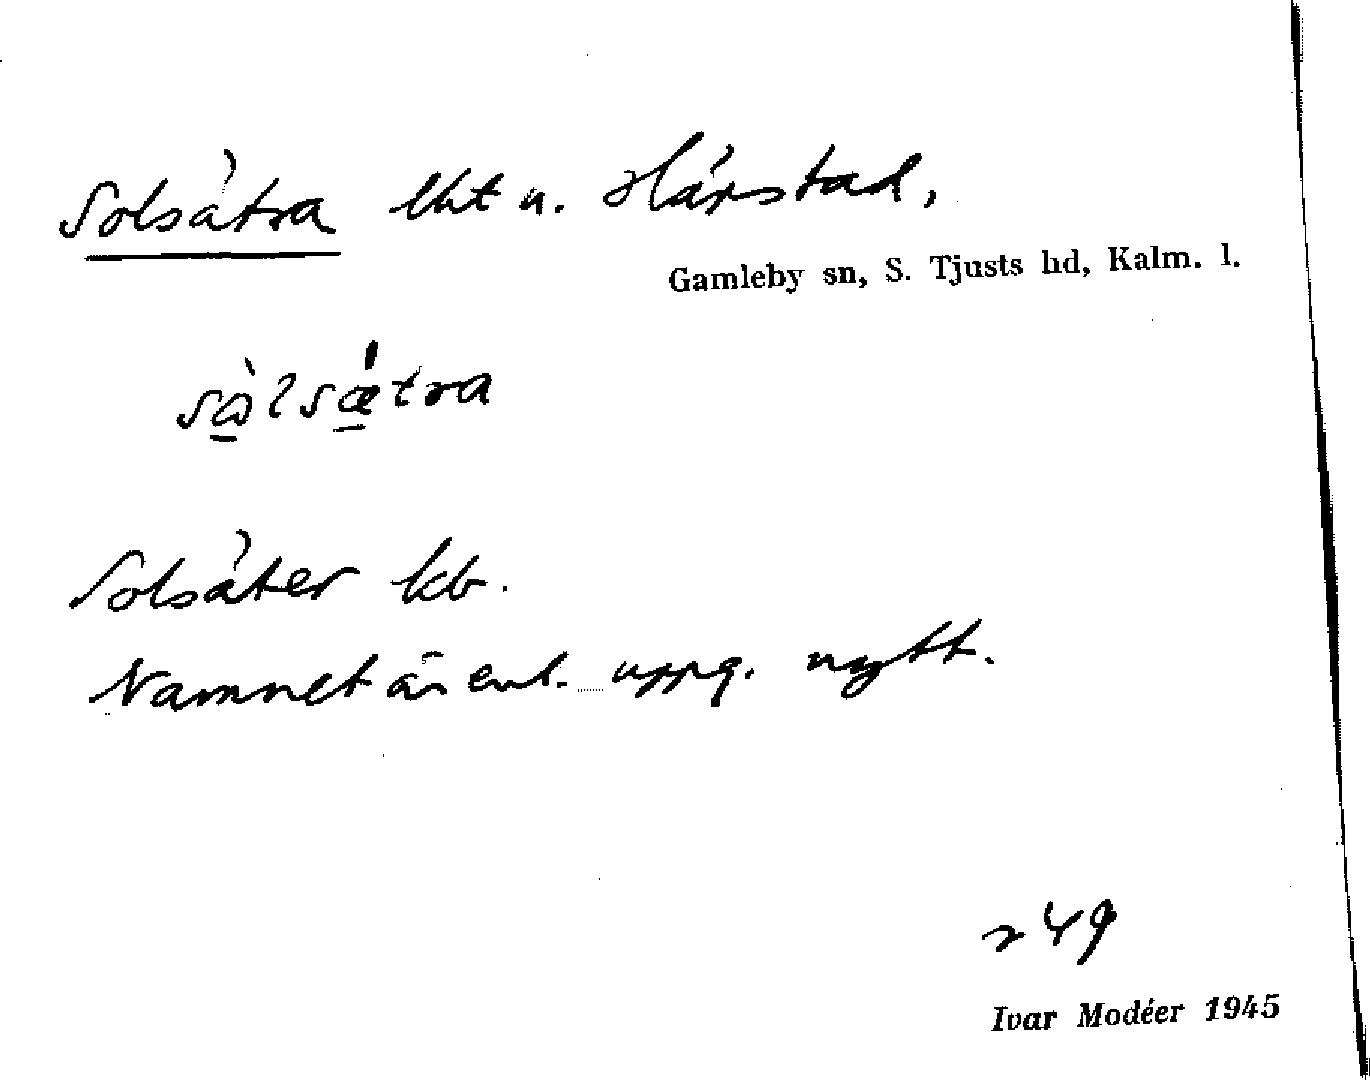 Solsätra lht u. Härstad,
Gamleby sn, S. Tjusts hd, Kalm. l.
Solsäter kb.
Namnet är enl. uppg. nytt.
249
Ivar Modéer 1945